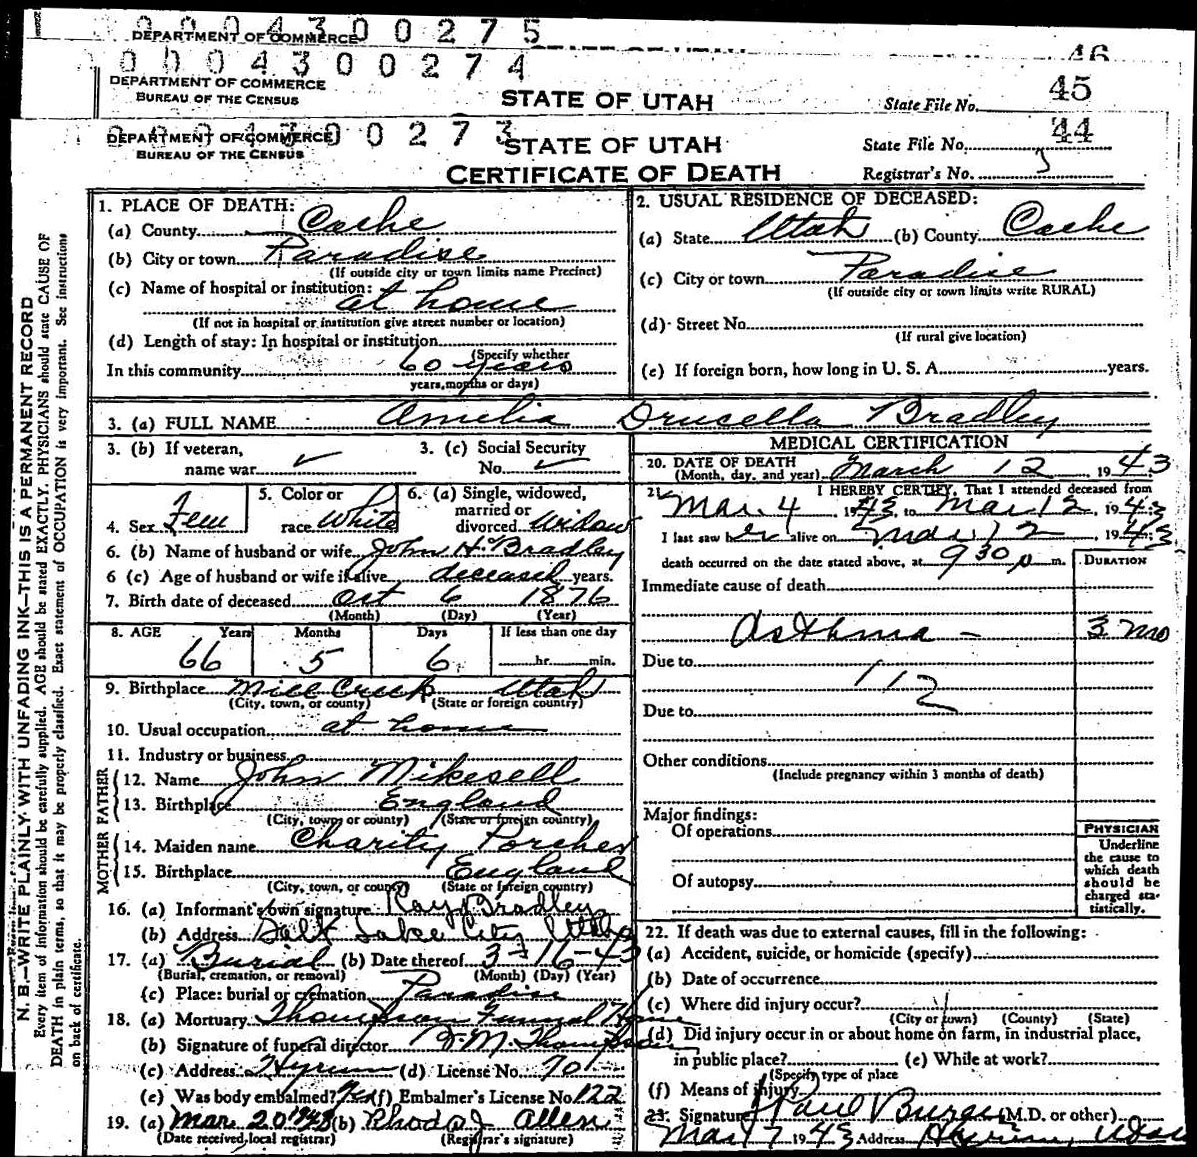 0004300275
DEPARTMENT OF COMMERCE
STATE OF UTAH
46
0004300274
DEPARTMENT OF COMMERCE
BUREAU OF THE CENSUS
STATE OF UTAH
State File No. 45
0004300273
DEPARTMENT OF COMMERCE
BUREAU OF THE CENSUS
STATE OF UTAH
CERTIFICATE OF DEATH
State File No. 44
Registrar's No. 3
N. B.—WRITE PLAINLY WITH UNFADING INK—THIS IS A PERMANENT RECORD
Every item of information should be carefully supplied. AGE should be stated EXACTLY. PHYSICIANS should state CAUSE OF
DEATH in plain terms, so that it may be properly classified. Exact statement of OCCUPATION is very important. See instructions
on back of certificate.
1. PLACE OF DEATH:
(a) County Cache
(b) City or town Paradise
(If outside city or town limits name Precinct)
(c) Name of hospital or institution:
at home
(If not in hospital or institution give street number or location)
(d) Length of stay: In hospital or institution
(Specify whether
In this community 60 years
years, months or days)
2. USUAL RESIDENCE OF DECEASED:
(a) State Utah (b) County Cache
(c) City or town Paradise
(If outside city or town limits write RURAL)
(d) Street No.
(If rural give location)
(e) If foreign born, how long in U. S. A. years.
3. (a) FULL NAME Amelia Drucella Bradley
3. (b) If veteran,
name war ✓
3. (c) Social Security
No. ✓
4. Sex Fem
5. Color or
race White
6. (a) Single, widowed,
married or
divorced Widow
6. (b) Name of husband or wife John H. Bradley
6 (c) Age of husband or wife if alive deceased years.
7. Birth date of deceased Oct 6 1876
(Month) (Day) (Year)
8. AGE Years Months Days If less than one day
66 5 6 hr. min.
9. Birthplace Mill Creek Utah
(City, town, or county) (State or foreign country)
10. Usual occupation at home
11. Industry or business
FATHER
12. Name John Mikesell
13. Birthplace England
(City, town, or county) (State or foreign country)
MOTHER
14. Maiden name Charity Porcher
15. Birthplace England
(City, town, or county) (State or foreign country)
16. (a) Informant's own signature Ray Bradley
(b) Address Salt Lake City Utah
17. (a) Burial (b) Date thereof 3-16-43
(Burial, cremation, or removal) (Month) (Day) (Year)
(c) Place: burial or cremation Paradise
18. (a) Mortuary Thompson Funeral Home
(b) Signature of funeral director
(c) Address Hyrum (d) License No. 701
(e) Was body embalmed? Yes (f) Embalmer's License No. 122
19. (a) Mar. 20 1943 (b) Rhoda J. Allen
(Date received local registrar) (Registrar's signature)
MEDICAL CERTIFICATION
20. DATE OF DEATH
(Month, day, and year) March 12, 1943
21. I HEREBY CERTIFY, That I attended deceased from
Mar. 4, 1943, to Mar 12, 1943
I last saw her alive on Mar 12, 1943
death occurred on the date stated above, at 9 30 p m.
DURATION
Immediate cause of death
Asthma - 3 mo
Due to
112
Due to
Other conditions
(Include pregnancy within 3 months of death)
Major findings:
Of operations
Of autopsy
PHYSICIAN
Underline
the cause to
which death
should be
charged sta-
tistically.
22. If death was due to external causes, fill in the following:
(a) Accident, suicide, or homicide (specify)
(b) Date of occurrence
(c) Where did injury occur?
(City or town) (County) (State)
(d) Did injury occur in or about home on farm, in industrial place,
in public place? (e) While at work?
(Specify type of place
(f) Means of injury
23. Signature Paul (M.D. or other)
Mar 17 1943 Address Hyrum, Utah